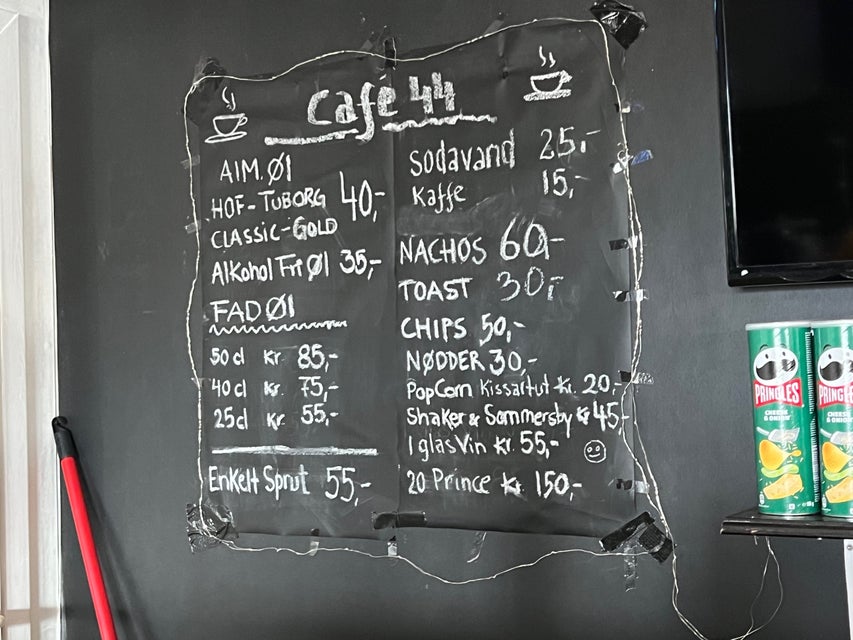 Café 44
AIM. ØI
HOF-TUBORG 40,-
CLASSIC-GOLD
Alkohol Fri Øl 35,-
FAD ØI
50 cl Kr. 85,-
40 cl Kr. 75,-
25 cl Kr. 55,-
Enkelt Sprut 55,-
Sodavand 25,-
Kaffe 15,-
NACHOS 60,-
TOAST 30,-
CHIPS 50,-
NØDDER 30,-
PopCorn Kissartut Kr. 20,-
Shaker & Sommersby Kr 45,-
1 glas Vin Kr. 55,-
20 Prince Kr 150,-
PRINGLES
CHEESE
& ONION
PRINGLES
CHEESE
& ONION